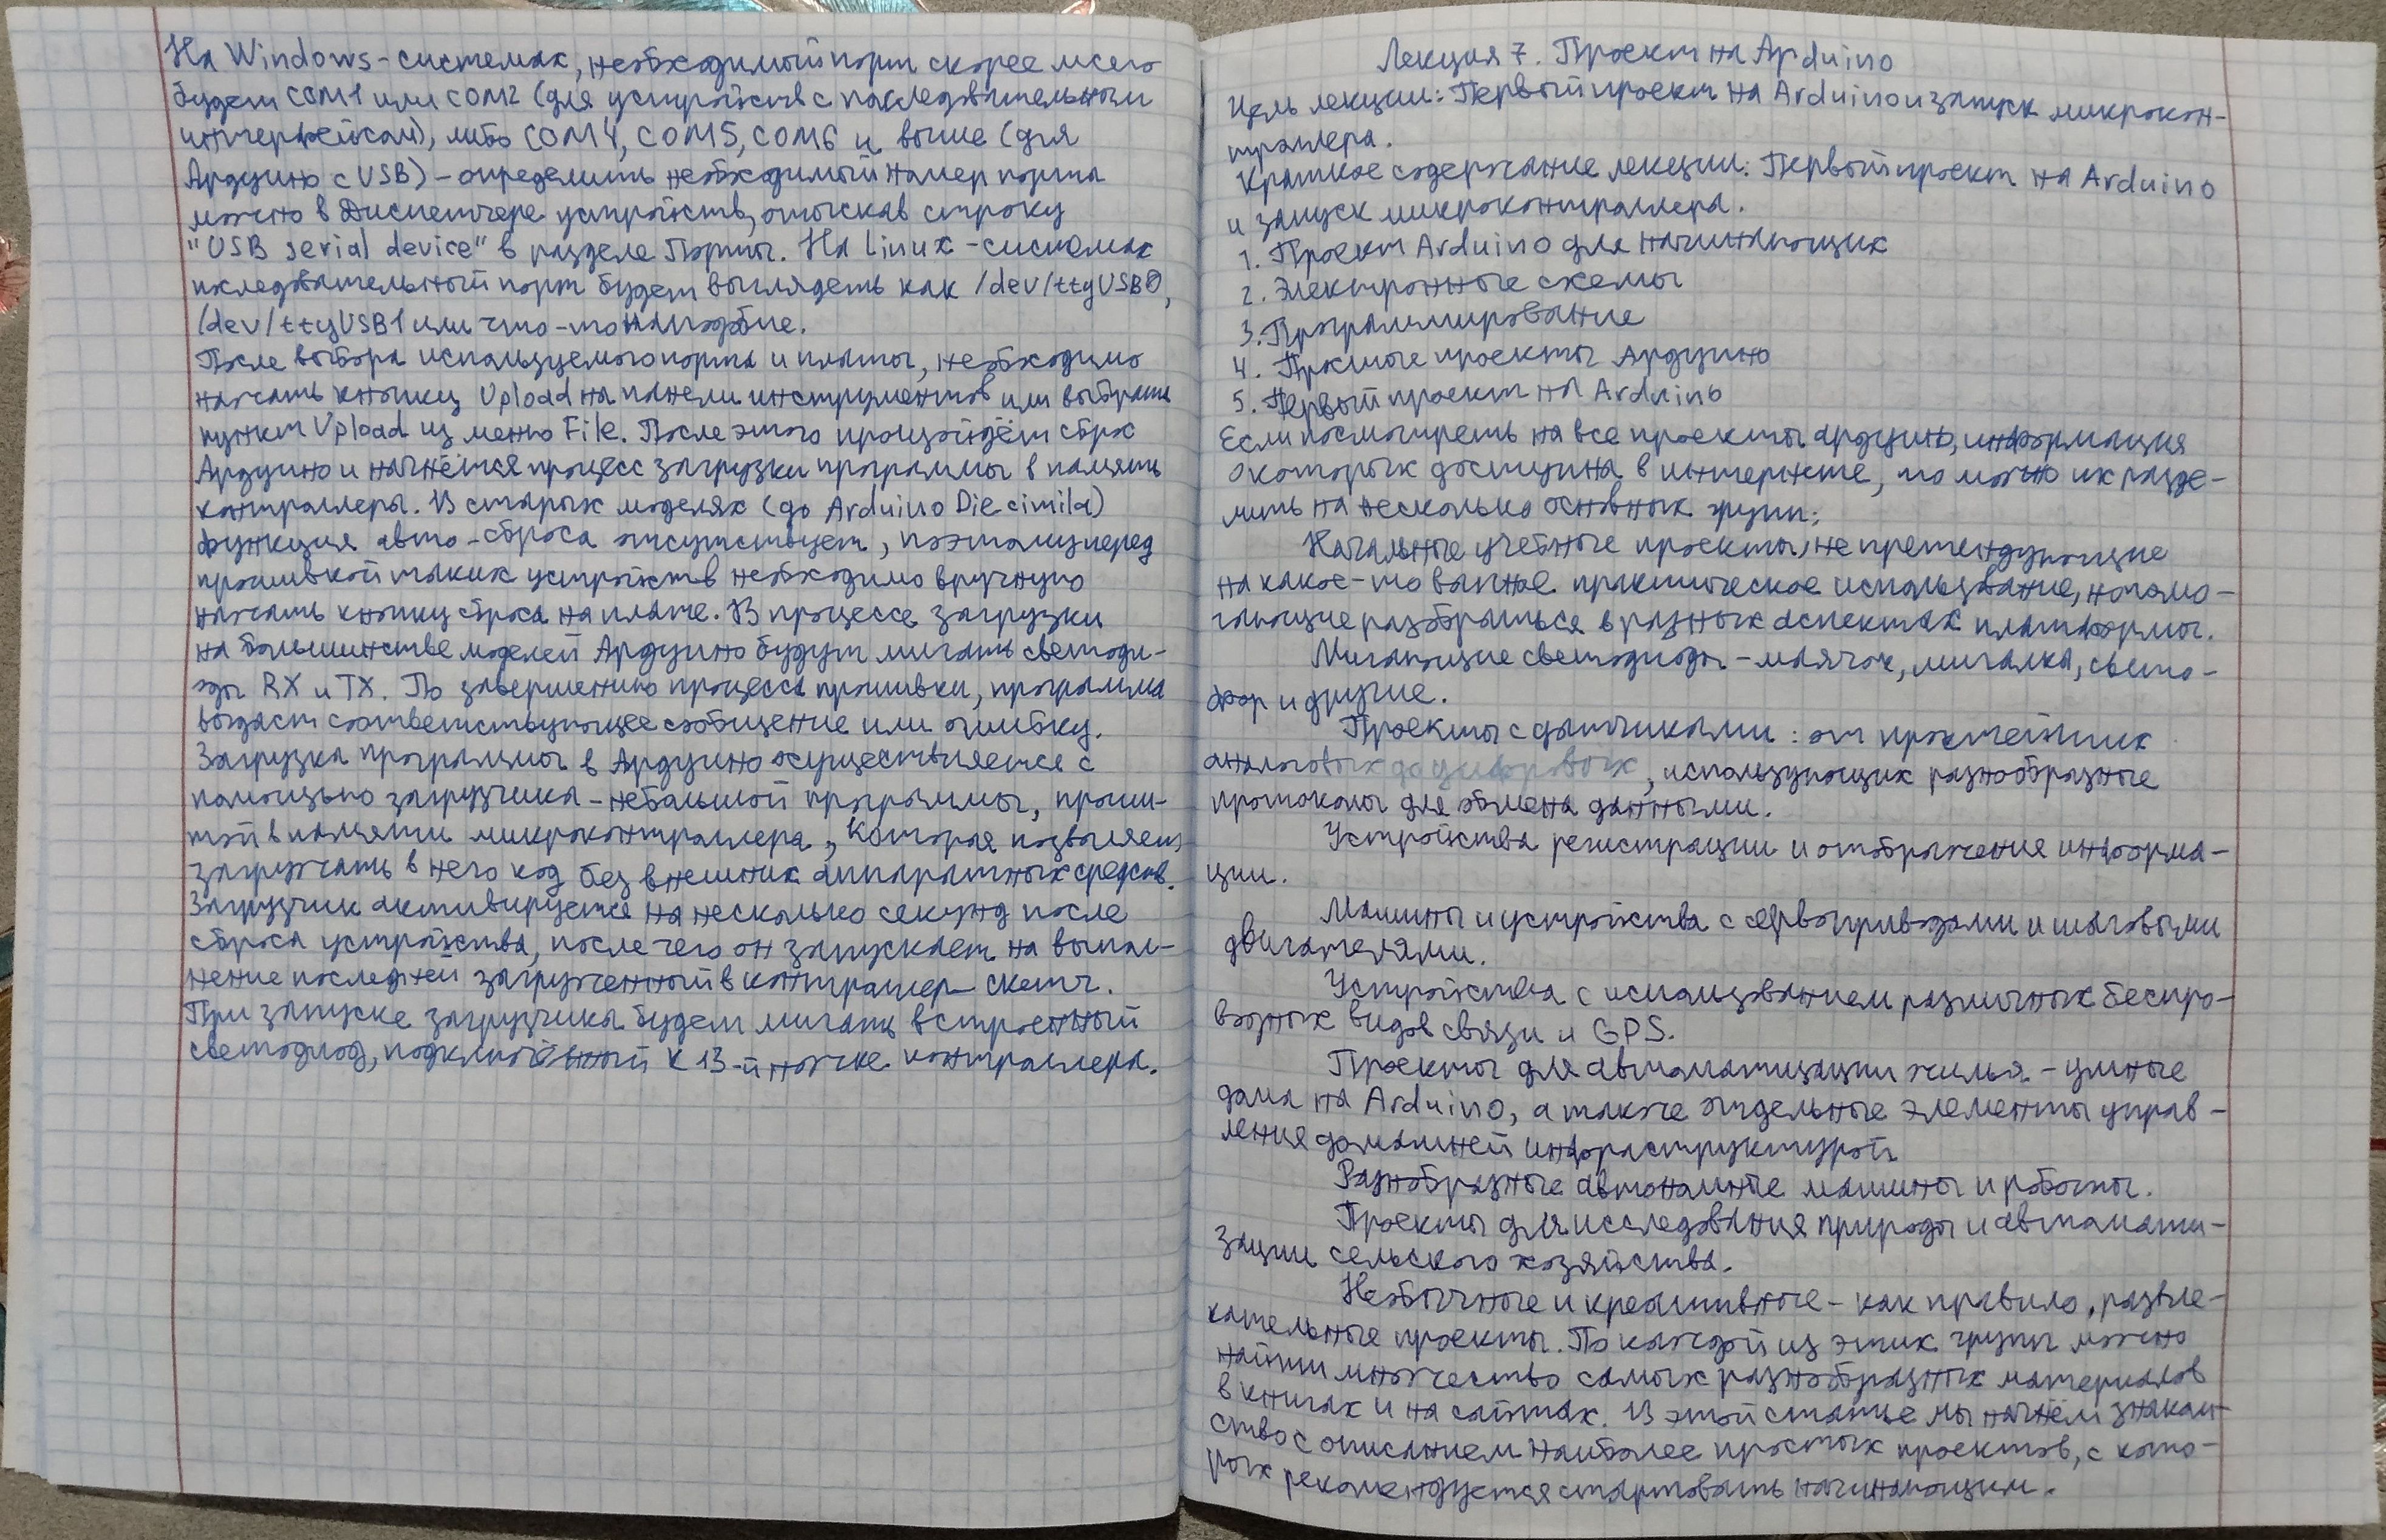 На Windows-системах, необходимый порт скорее всего
будет COM1 или COM2 (для устройств с последовательным
интерфейсом), либо COM4, COM5, COM6 и выше (для
Ардуино с USB) - определить необходимый номер порта
можно в Диспетчере устройств, отыскав строку
"USB serial device" в разделе Порты. На Linux-системах
последовательный порт будет выглядеть как /dev/ttyUSB0,
/dev/ttyUSB1 или что-то наподобие.
После выбора используемого порта и платы, необходимо
нажать кнопку Upload на панели инструментов или выбрать
пункт Upload из меню File. После этого произойдёт сброс
Ардуино и начнётся процесс загрузки программы в память
контроллера. В старых моделях (до Arduino Diecimila)
функция авто-сброса отсутствует, поэтому перед
прошивкой таких устройств необходимо вручную
нажать кнопку сброса на плате. В процессе загрузки
на большинстве моделей Ардуино будут мигать светоди-
оды RX и TX. По завершению процесса прошивки, программа
выдаст соответствующее сообщение или ошибку.
Загрузка программы в Ардуино осуществляется с
помощью загрузчика - небольшой программы, проши-
той в памяти микроконтроллера, которая позволяет
загружать в него код без внешних аппаратных средсв.
Загрузчик активируется на несколько секунд после
сброса устройства, после чего он запускает на выпол-
нение последней загруженный в контроллер скетч.
При запуске загрузчика будет мигать встроенный
светодиод, подключённый к 13-й ножке контроллера.
Лекция 7. Проект на Arduino
Цель лекции: Первый проект на Arduino и запуск микрокон-
троллера.
Краткое содержание лекции: Первый проект на Arduino
и запуск микроконтроллера.
1. Проект Arduino для начинающих
2. Электронные схемы
3. Программирование
4. Простые проекты Ардуино
5. Первый проект на Arduino
Если посмотреть на все проекты ардуино, информация
о которых доступна в интернете, то можно их разде-
лить на несколько основных групп:
Начальные учебные проекты, не претендующие
на какое-то важное практическое использование, но помо-
гающие разобраться в разных аспектах платформы.
Мигающие светодиоды - маячок, мигалка, свето-
фор и другие.
Проекты с датчиками: от простейших
аналоговых до цифровых, использующих разнообразные
протоколы для обмена данными.
Устройства регистрации и отображения информа-
ции.
Машины и устройства с сервоприводами и шаговыми
двигателями.
Устройства с использованием различных беспро-
водных видов связи и GPS.
Проекты для автоматизации жилья - умные
дома на Arduino, а также отдельные элементы управ-
ления домашней инфраструктурой
Разнобразные автономные машины и роботы.
Проекты для исследования природы и автомати-
зации сельского хозяйства.
Необычные и креативные - как правило, развле-
кательные проекты. По каждой из этих групп можно
найти множество самых разнообразных материалов
в книгах и на сайтах. В этой статье мы начнём знаком-
ство с описанием наиболее простых проектов, с кото-
рых рекомендуется стартовать начинающим.